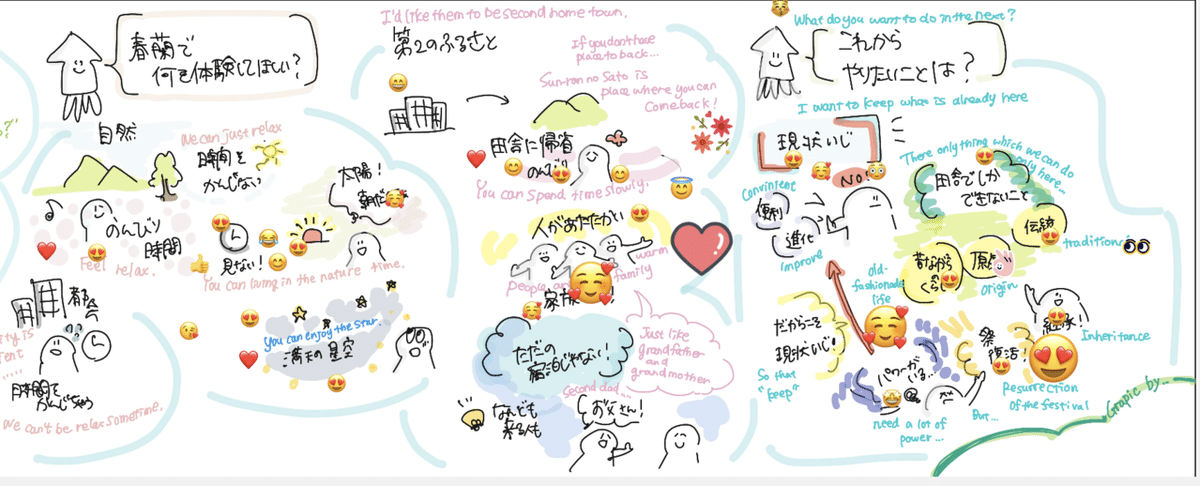 春蘭で
何を体験してほしい？
自然
We can just relax
時間を
かんじない
太陽！
朝だ
のんびり
時間
Feel relax.
見ない！
You can living in the nature time.
都会
時間で
We can't be relax sometime.
You can enjoy the star.
満天の星空
I'd like them to be second home town.
第2のふるさと
If you don't have
place to back...
Sun-ran no Sato is
place where you can
come back!
田舎に帰省
のんび
You can spend time slowly.
人があたたかい
warm
family
People are
家族
ただの
宿泊じゃない！
Just like
grandfather
and
grandmother
Second dad...
なんども
来る人も
お父さん！
What do you want to do in the next?
これから
やりたいことは？
I want to keep what is already here
現状いじ
NO!
There only thing which we can do
only here...
田舎でしか
できないこと
Convinient
便利
進化
Improve
伝統
traditional
昔ながら
くらし
原点
origin
old-
fashionade
life
継承
Inheritance
だからこそ
現状いじ！
So that
"keep"
パワーがる...
need a lot of
power...
But...
祭
復活！
Resurrection
of the festival
Grapic by...